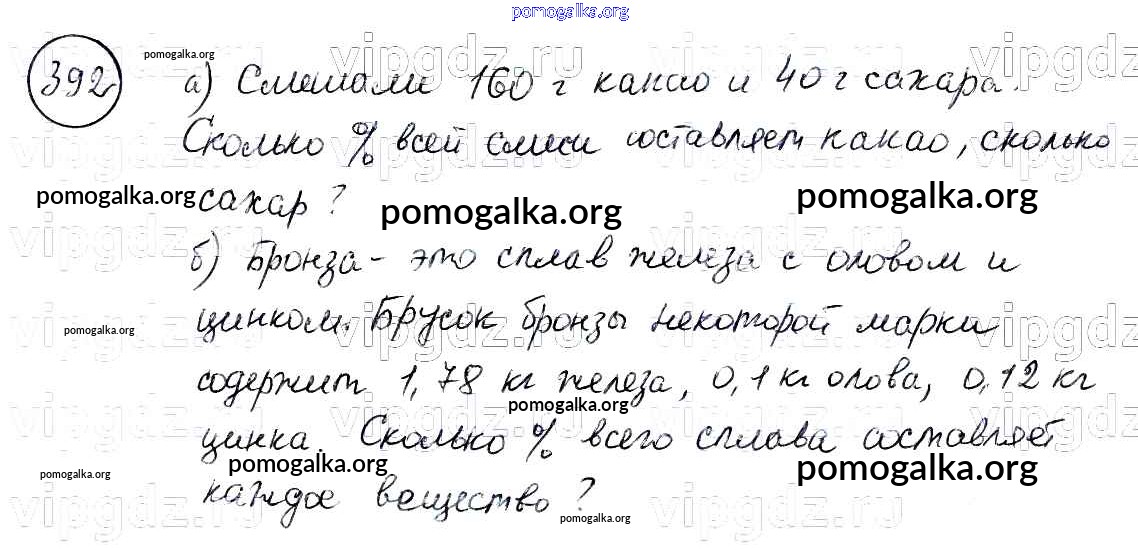 pomogalka.org
392 а) Смешали 160 г какао и 40 г сахара.
Сколько % всей смеси составляет какао, сколько
сахар?
б) Бронза - это сплав железа с оловом и
цинком. Брусок бронзы некоторой марки
содержит 1,78 кг железа, 0,1 кг олова, 0,12 кг
цинка. Сколько % всего сплава составляет
каждое вещество?
pomogalka.org
pomogalka.org
pomogalka.org
pomogalka.org
pomogalka.org
pomogalka.org
pomogalka.org
pomogalka.org
pomogalka.org
pomogalka.org
vipgdz.ru
vipgdz.ru
vipgdz.ru
vipgdz.ru
vipgdz.ru
vipgdz.ru